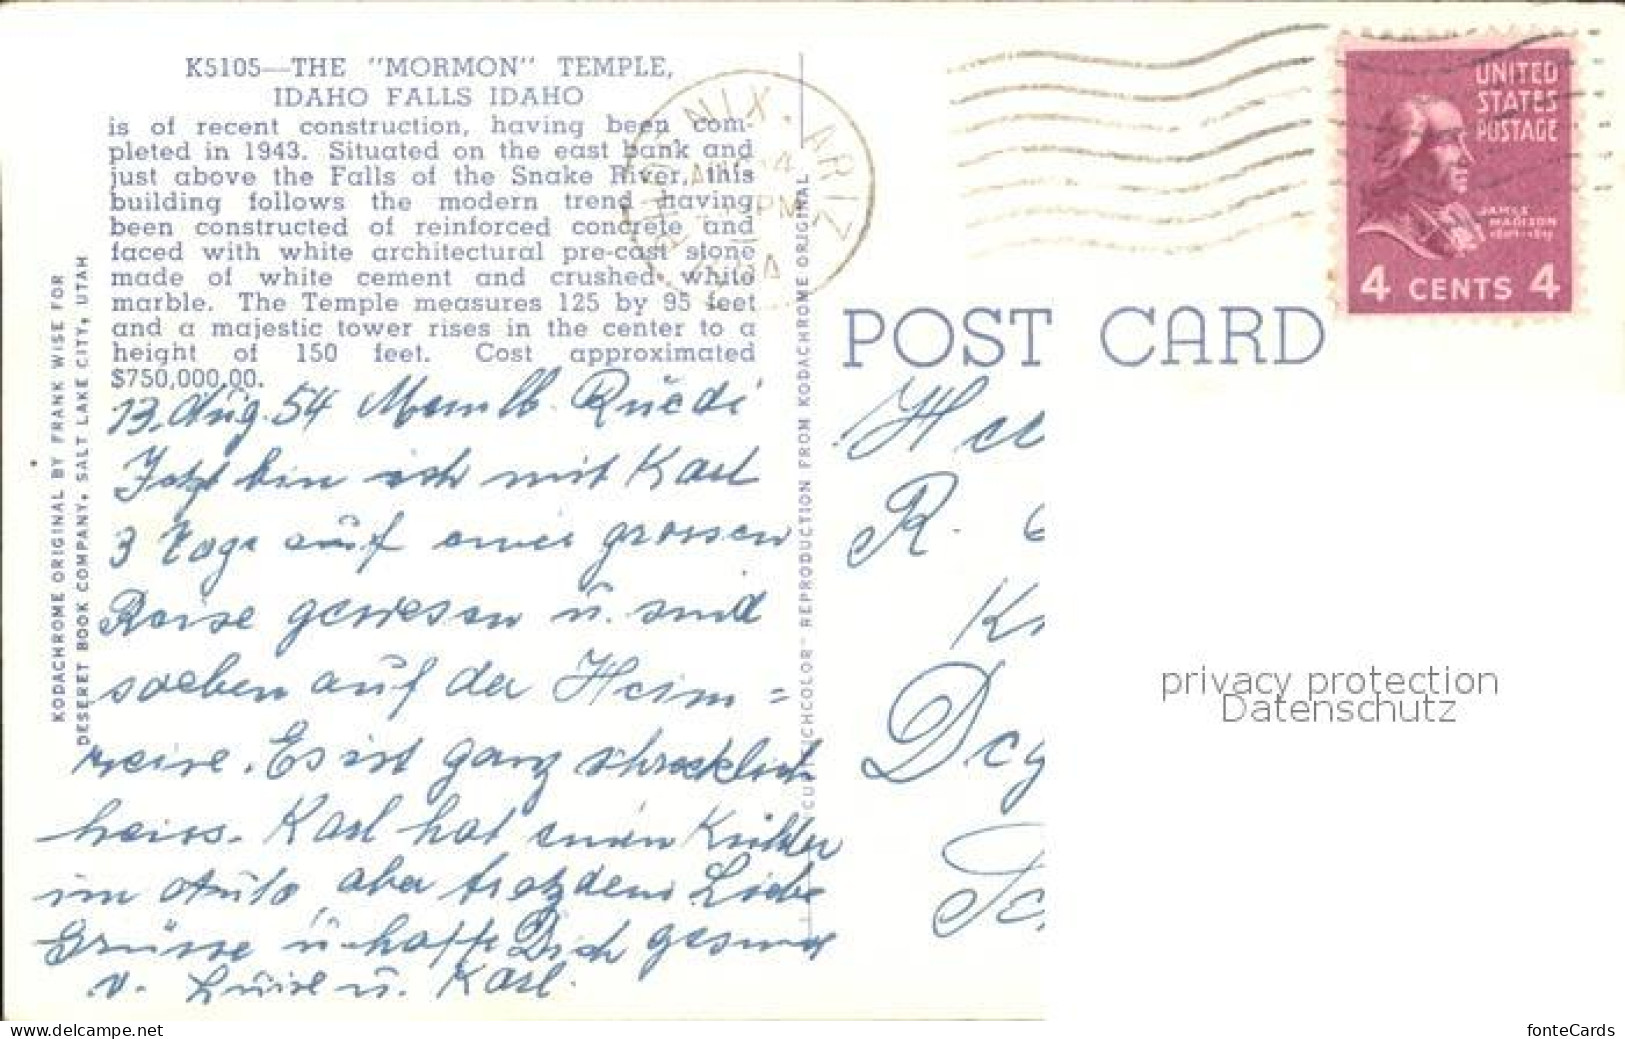 K5105—THE "MORMON" TEMPLE,
IDAHO FALLS IDAHO
is of recent construction, having been com-
pleted in 1943. Situated on the east bank and
just above the Falls of the Snake River, this
building follows the modern trend having
been constructed of reinforced concrete and
faced with white architectural pre-cast stone
made of white cement and crushed white
marble. The Temple measures 125 by 95 feet
and a majestic tower rises in the center to a
height of 150 feet. Cost approximated
$750,000.00.
KODACHROME ORIGINAL BY FRANK WISE FOR
DESERET BOOK COMPANY, SALT LAKE CITY, UTAH
13. Aug. 54 Ruedi
Jetzt bin ich mit Karl
3 Tage auf einer grossen
Reise gewesen u. sind
soeben auf der Heim=
reise. Es ist ganz schrecklich
heiss. Karl hat einen Kühler
im Auto, aber trotzdem Liebe
Grüsse u. hoffe Dich gesund
v. Luise u. Karl.
REPRODUCTION FROM KODACHROME ORIGINAL
NIX, ARIZ
PM
UNITED
STATES
POSTAGE
JAMES
MADISON
4 CENTS 4
POST CARD
R.
privacy protection
Datenschutz
www.delcampe.net
fonteCards